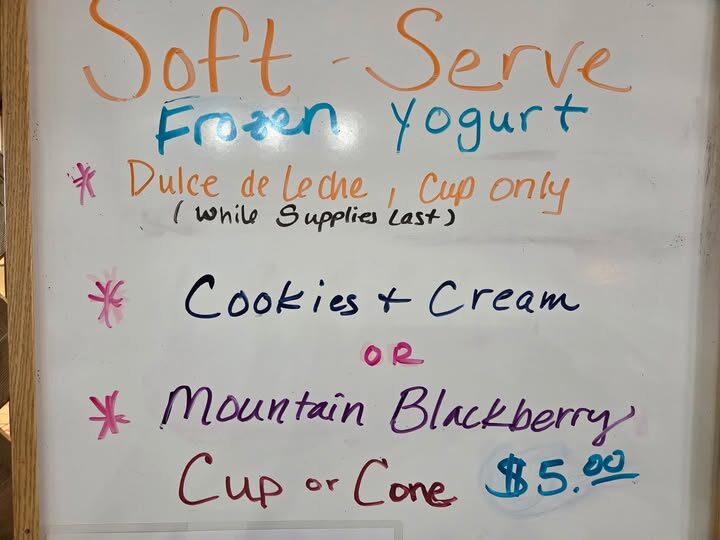 Soft-Serve
Frozen Yogurt
* Dulce de Leche, Cup only
(While Supplies Last)
* Cookies + Cream
OR
* Mountain Blackberry
Cup or Cone $5.00